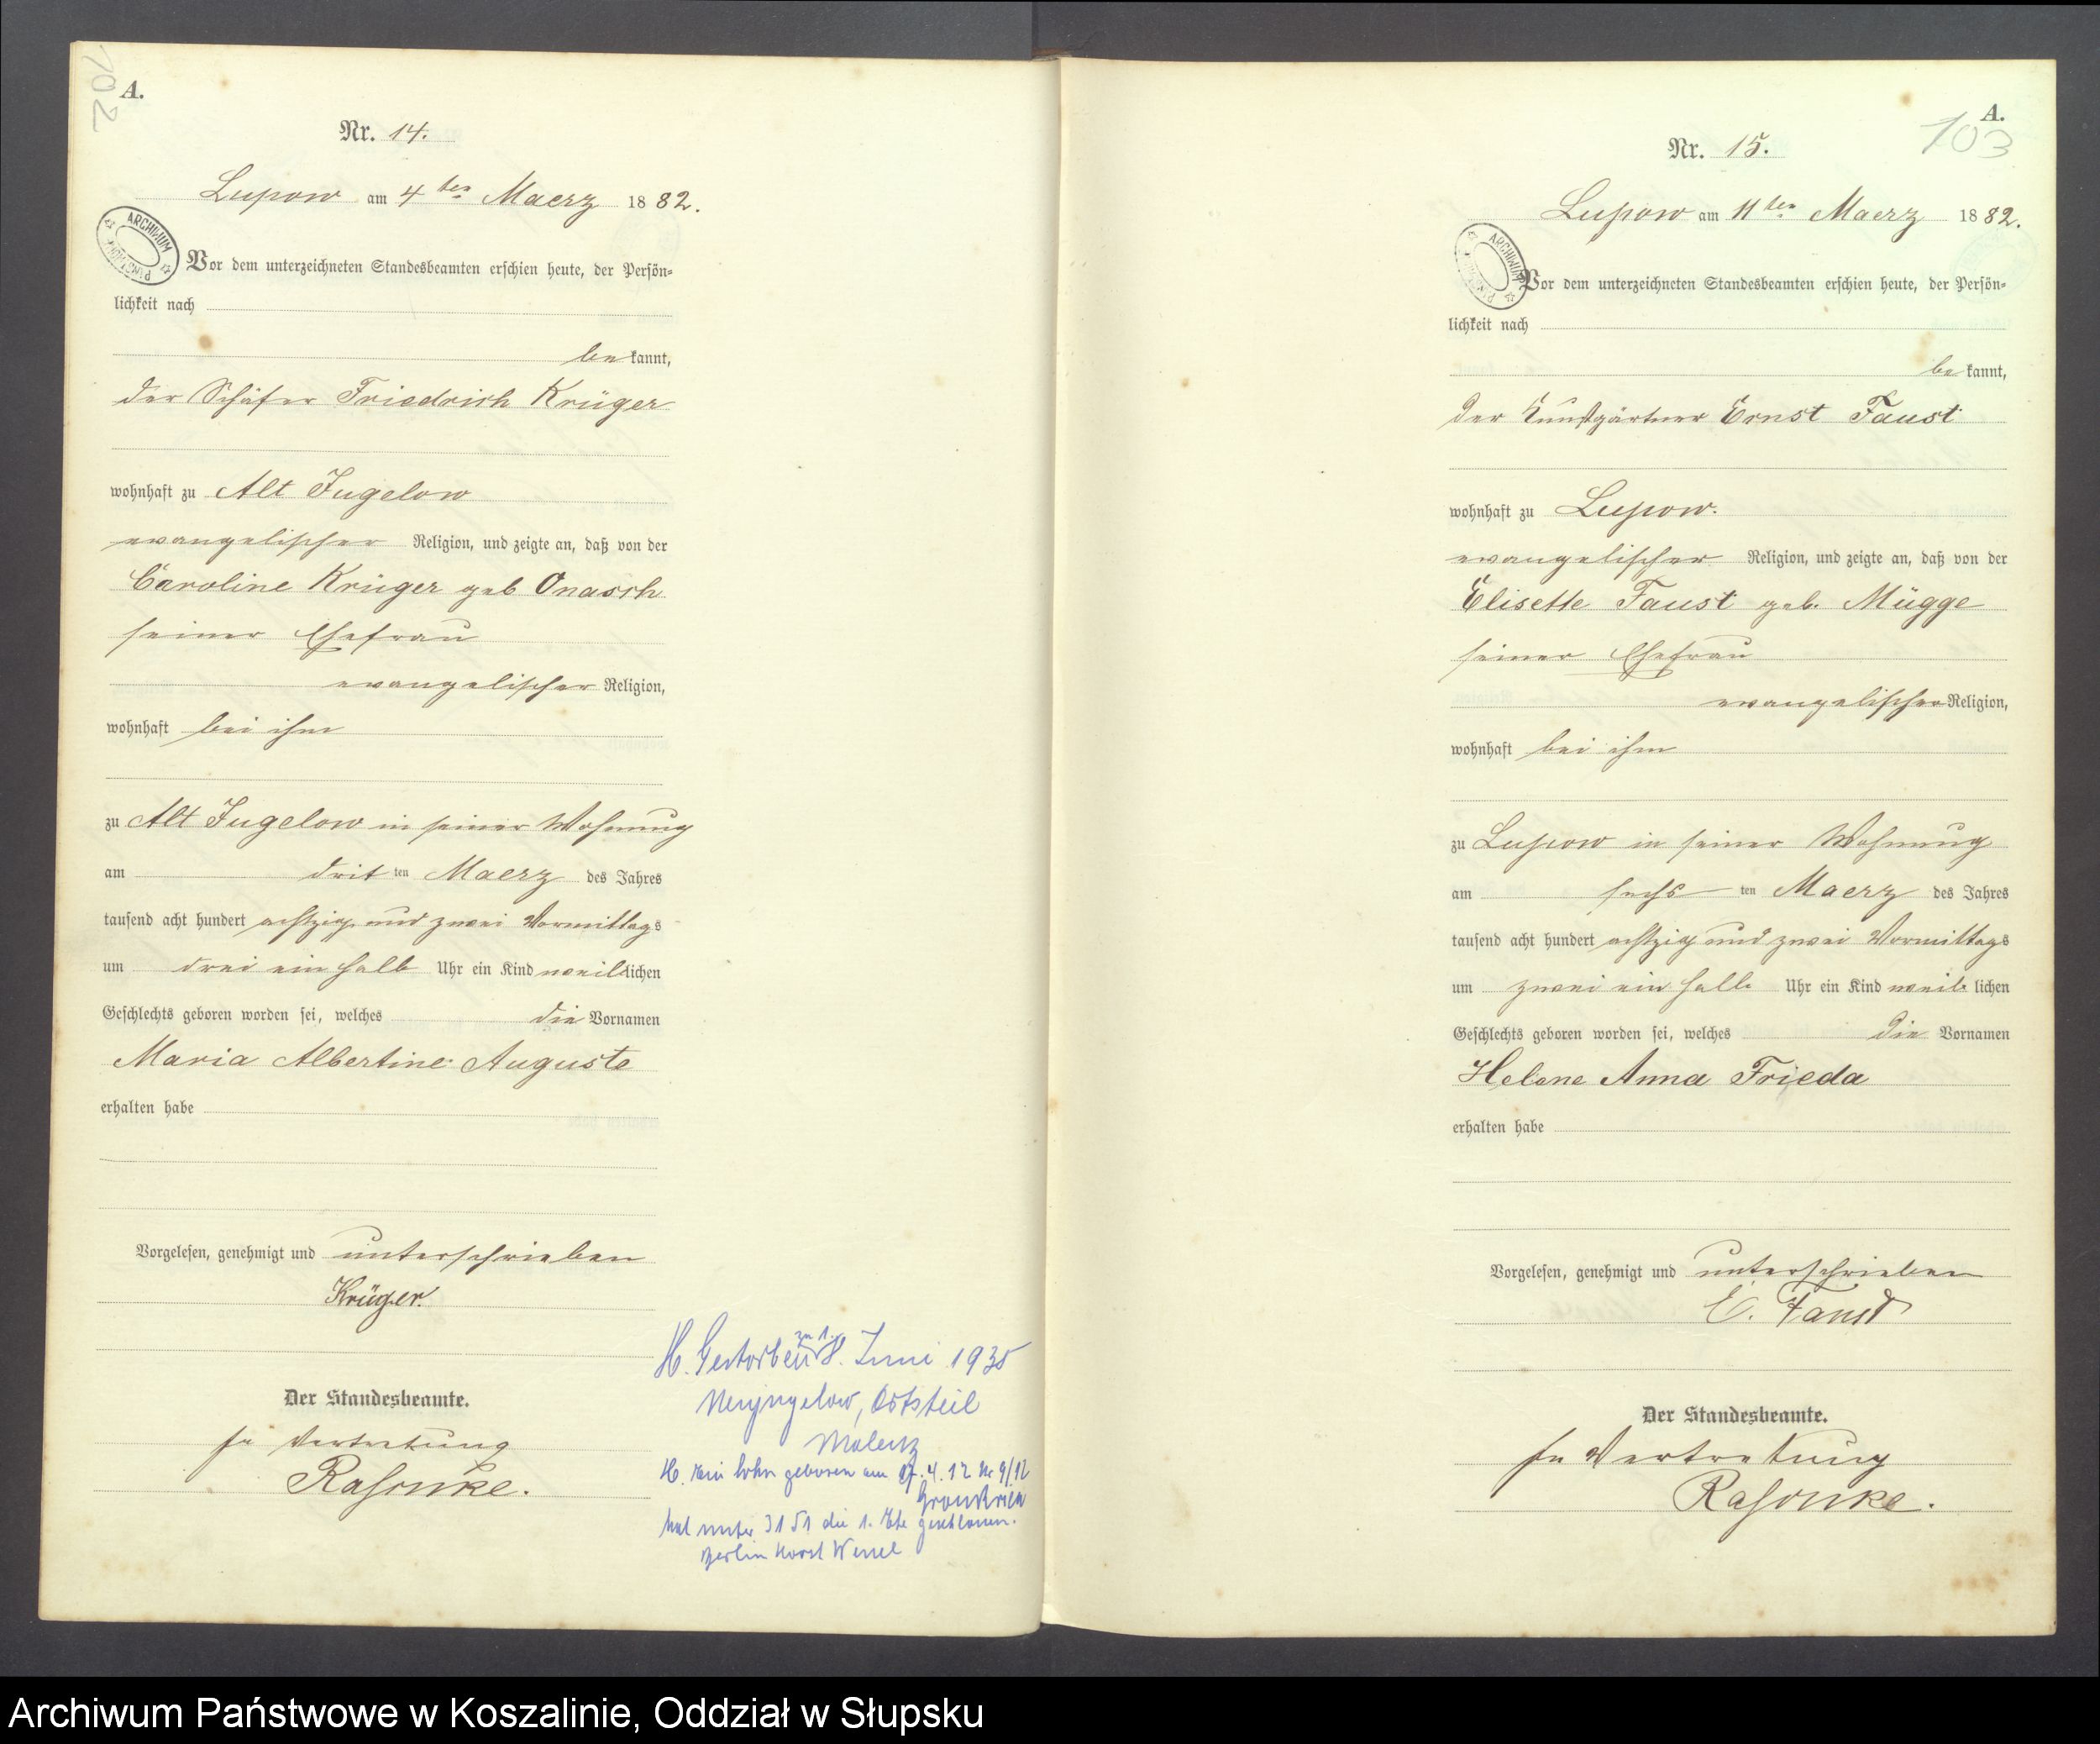 102
A.
Nr. 14.
Lupow am 4ten Maerz 1882.
ARCHIWUM
Vor dem unterzeichneten Standesbeamten erschien heute, der Persön=
lichkeit nach
bekannt,
der Schäfer Friedrich Krüger
wohnhaft zu Alt Jugelow
evangelischer Religion, und zeigte an, daß von der
Caroline Krüger geb Onasch
seiner Ehefrau
evangelischer Religion,
wohnhaft bei ihm
zu Alt Jugelow in seiner Wohnung
am dritten Maerz des Jahres
tausend acht hundert achtzig und zwei Vormittags
um drei ein halb Uhr ein Kind weiblichen
Geschlechts geboren worden sei, welches die Vornamen
Maria Albertine Auguste
erhalten habe
Vorgelesen, genehmigt und unterschrieben
Krüger.
Der Standesbeamte.
In Vertretung
H. Gestorben 8. Juni 1935
zu 1.
Neujugelow, Ortsteil
H. Ein Sohn geboren am 17.4.12 Nr 9/12
hat unter 3151 die 1. Ehe geschlossen.
Berlin Horst Wessel
103
A.
Nr. 15.
Lupow am 11ten Maerz 1882.
ARCHIWUM
Vor dem unterzeichneten Standesbeamten erschien heute, der Persön=
lichkeit nach
bekannt,
der Kunstgärtner Ernst Faust
wohnhaft zu Lupow.
evangelischer Religion, und zeigte an, daß von der
Elisette Faust geb. Mügge
seiner Ehefrau
evangelischer Religion,
wohnhaft bei ihm
zu Lupow in seiner Wohnung
am sechsten Maerz des Jahres
tausend acht hundert achtzig und zwei Vormittags
um zwei ein halb Uhr ein Kind weiblichen
Geschlechts geboren worden sei, welches die Vornamen
Helene Anna Frieda
erhalten habe
Vorgelesen, genehmigt und unterschrieben
E. Faust
Der Standesbeamte.
In Vertretung
Archiwum Państwowe w Koszalinie, Oddział w Słupsku